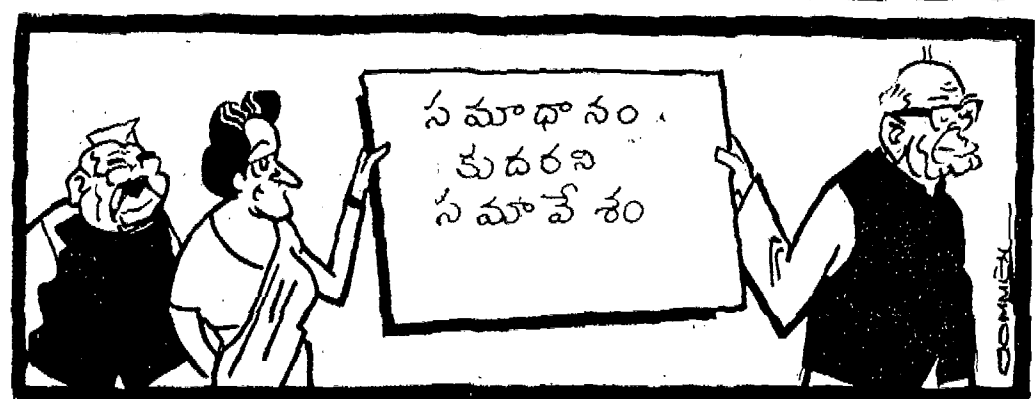 సమాధానం
కుదరని
సమావేశం
OOMMEN